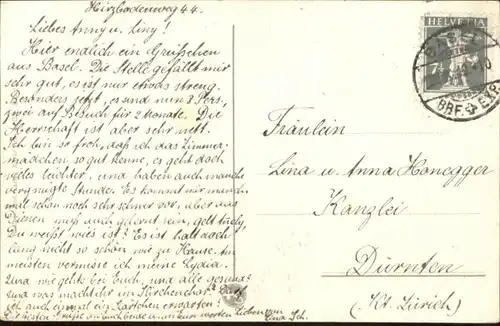 Hirzbodenweg 44.
Liebes Anny u. Liny!
Hier endlich ein Grüßchen
aus Basel. Die Stelle gefällt mir
sehr gut, es ist nur etwas streng.
Besonders jetzt, es sind nun 8 Pers.,
zwei auf Besuch für 2 Monate. Die
Herrschaft ist aber sehr nett.
Ich bin so froh, daß ich das Zimmer-
mädchen so gut kenne, es geht doch
vieles leichter, und haben auch manche
vergnügte Stunde. Es kommt mir manch-
mal schon noch sehr schwer vor, aber das
Dienen muß auch gelernt sein, gelt
Du weißt wies ist! Es ist halt doch
lang nicht so schön wie zu Hause. Am
meisten vermisse ich meine Lydia.
Und wie gehts bei Euch, und alle gesund?
Und was macht ihr im Kirchenchor? Darf
ich auch einmal ein Kärtchen erwarten?
Die besten Grüße an
Lina Sch.
HELVETIA
BASEL
BRF. EXP.
Fräulein
Lina u. Anna Honegger
Kanzlei
Dürnten
(Kt. Zürich)